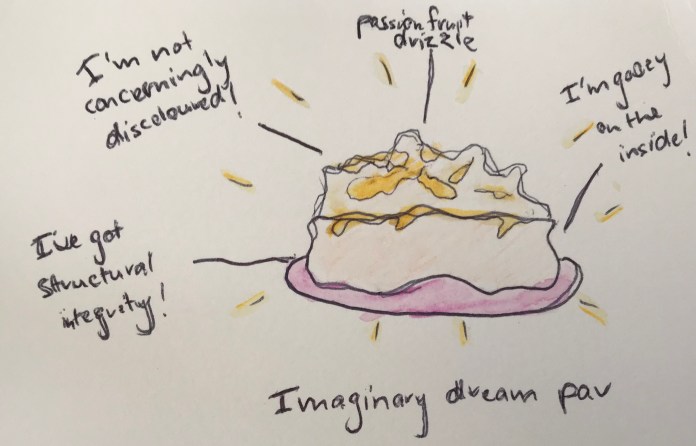 passionfruit
drizzle
I'm not
concerningly
discoloured!
I'm gooey
on the
inside!
I've got
structural
integrity!
Imaginary dream pav